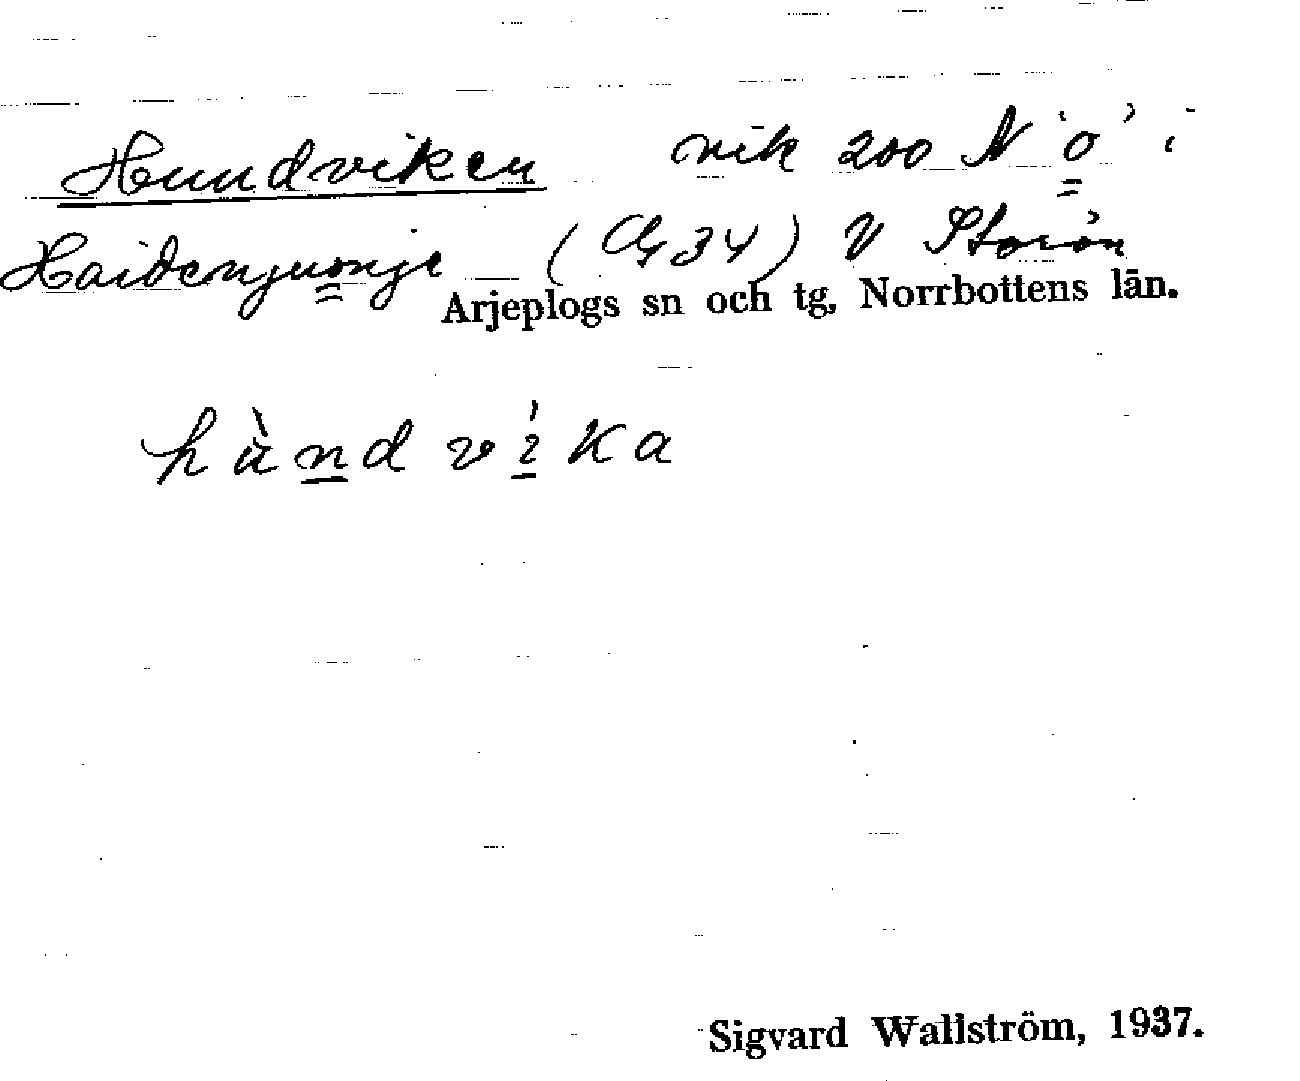 Hundviken vik 200 N 'o' i
Haidenjuonje (C 34) V Storön
Arjeplogs sn och tg, Norrbottens län.
hùndvíka
Sigvard Wallström, 1937.